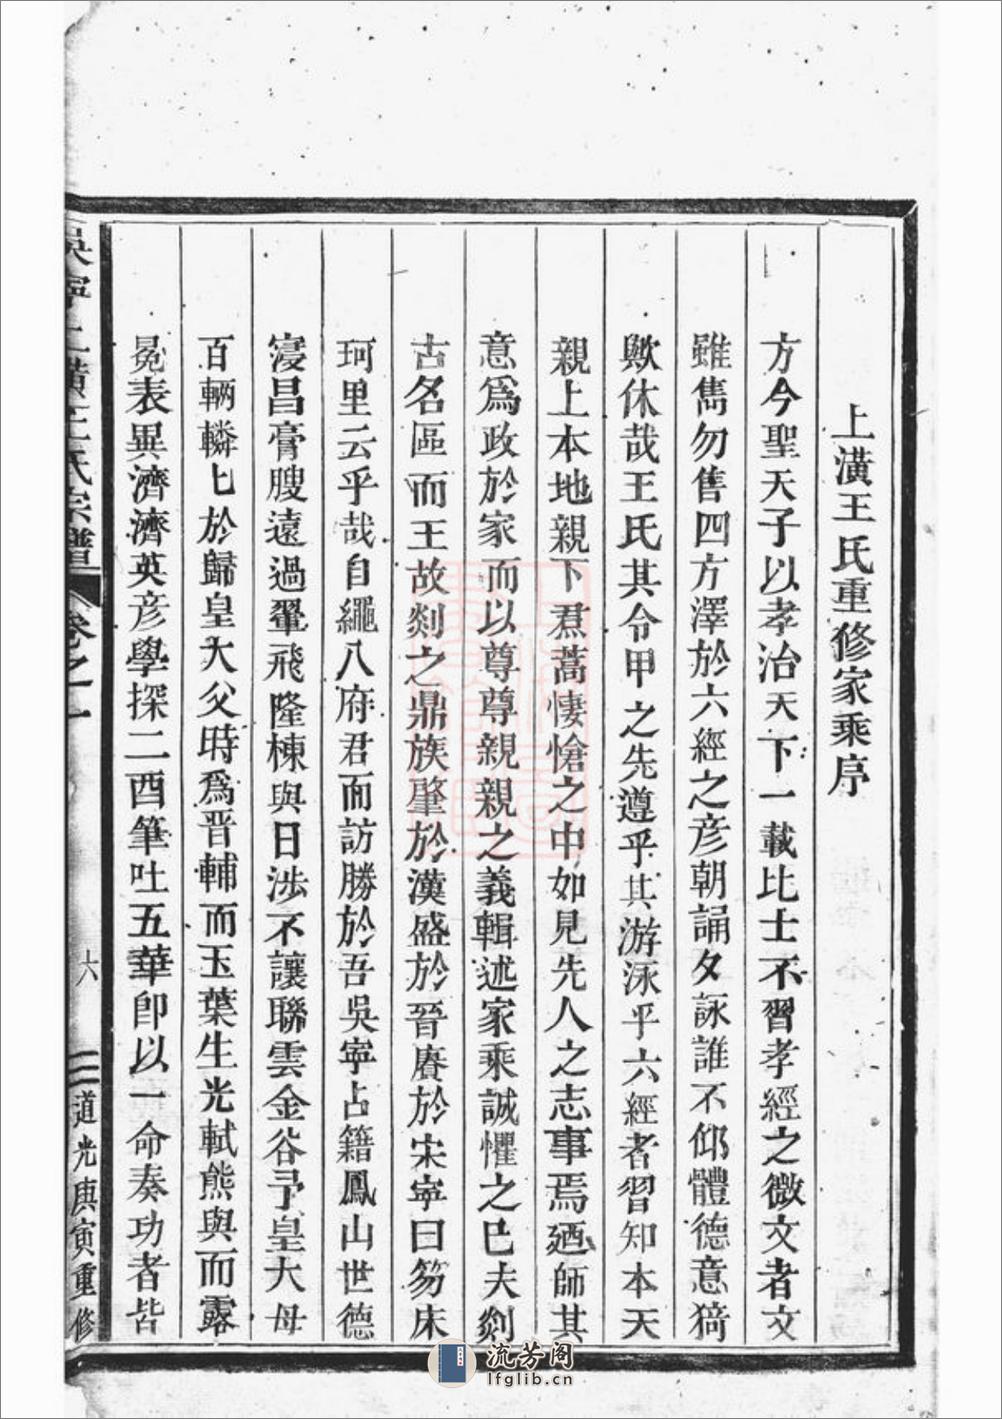 上潢王氏重修家乘序
方今聖天子以孝治天下一載比士不習孝經之微文者文
雖雋勿售四方澤於六經之彦朝誦夕詠誰不仰體德意猗
歟休哉王氏其令甲之先遵乎其游泳乎六經者習知本天
親上本地親下焄蒿悽愴之中如見先人之志事焉廼師其
意爲政於家而以尊尊親親之義輯述家乘誠懼之已夫剡
古名區而王故剡之鼎族肇於漢盛於晉賡於宋寧曰笏床
珂里云乎哉自繩八府君而訪勝於吾吳寧占籍鳳山世德
寖昌膏腴遠過翬飛隆棟與日涉不讓聯雲金谷予皇大母
百輛轔匕於歸皇大父時爲晋輔而玉葉生光軾熊與而露
冕表異濟濟英彦學探二酉筆吐五華卽以一命奏功者皆
吳寧上潢王氏宗譜 卷之一 六 道光庚寅重修
流芳阁
lfglib.cn